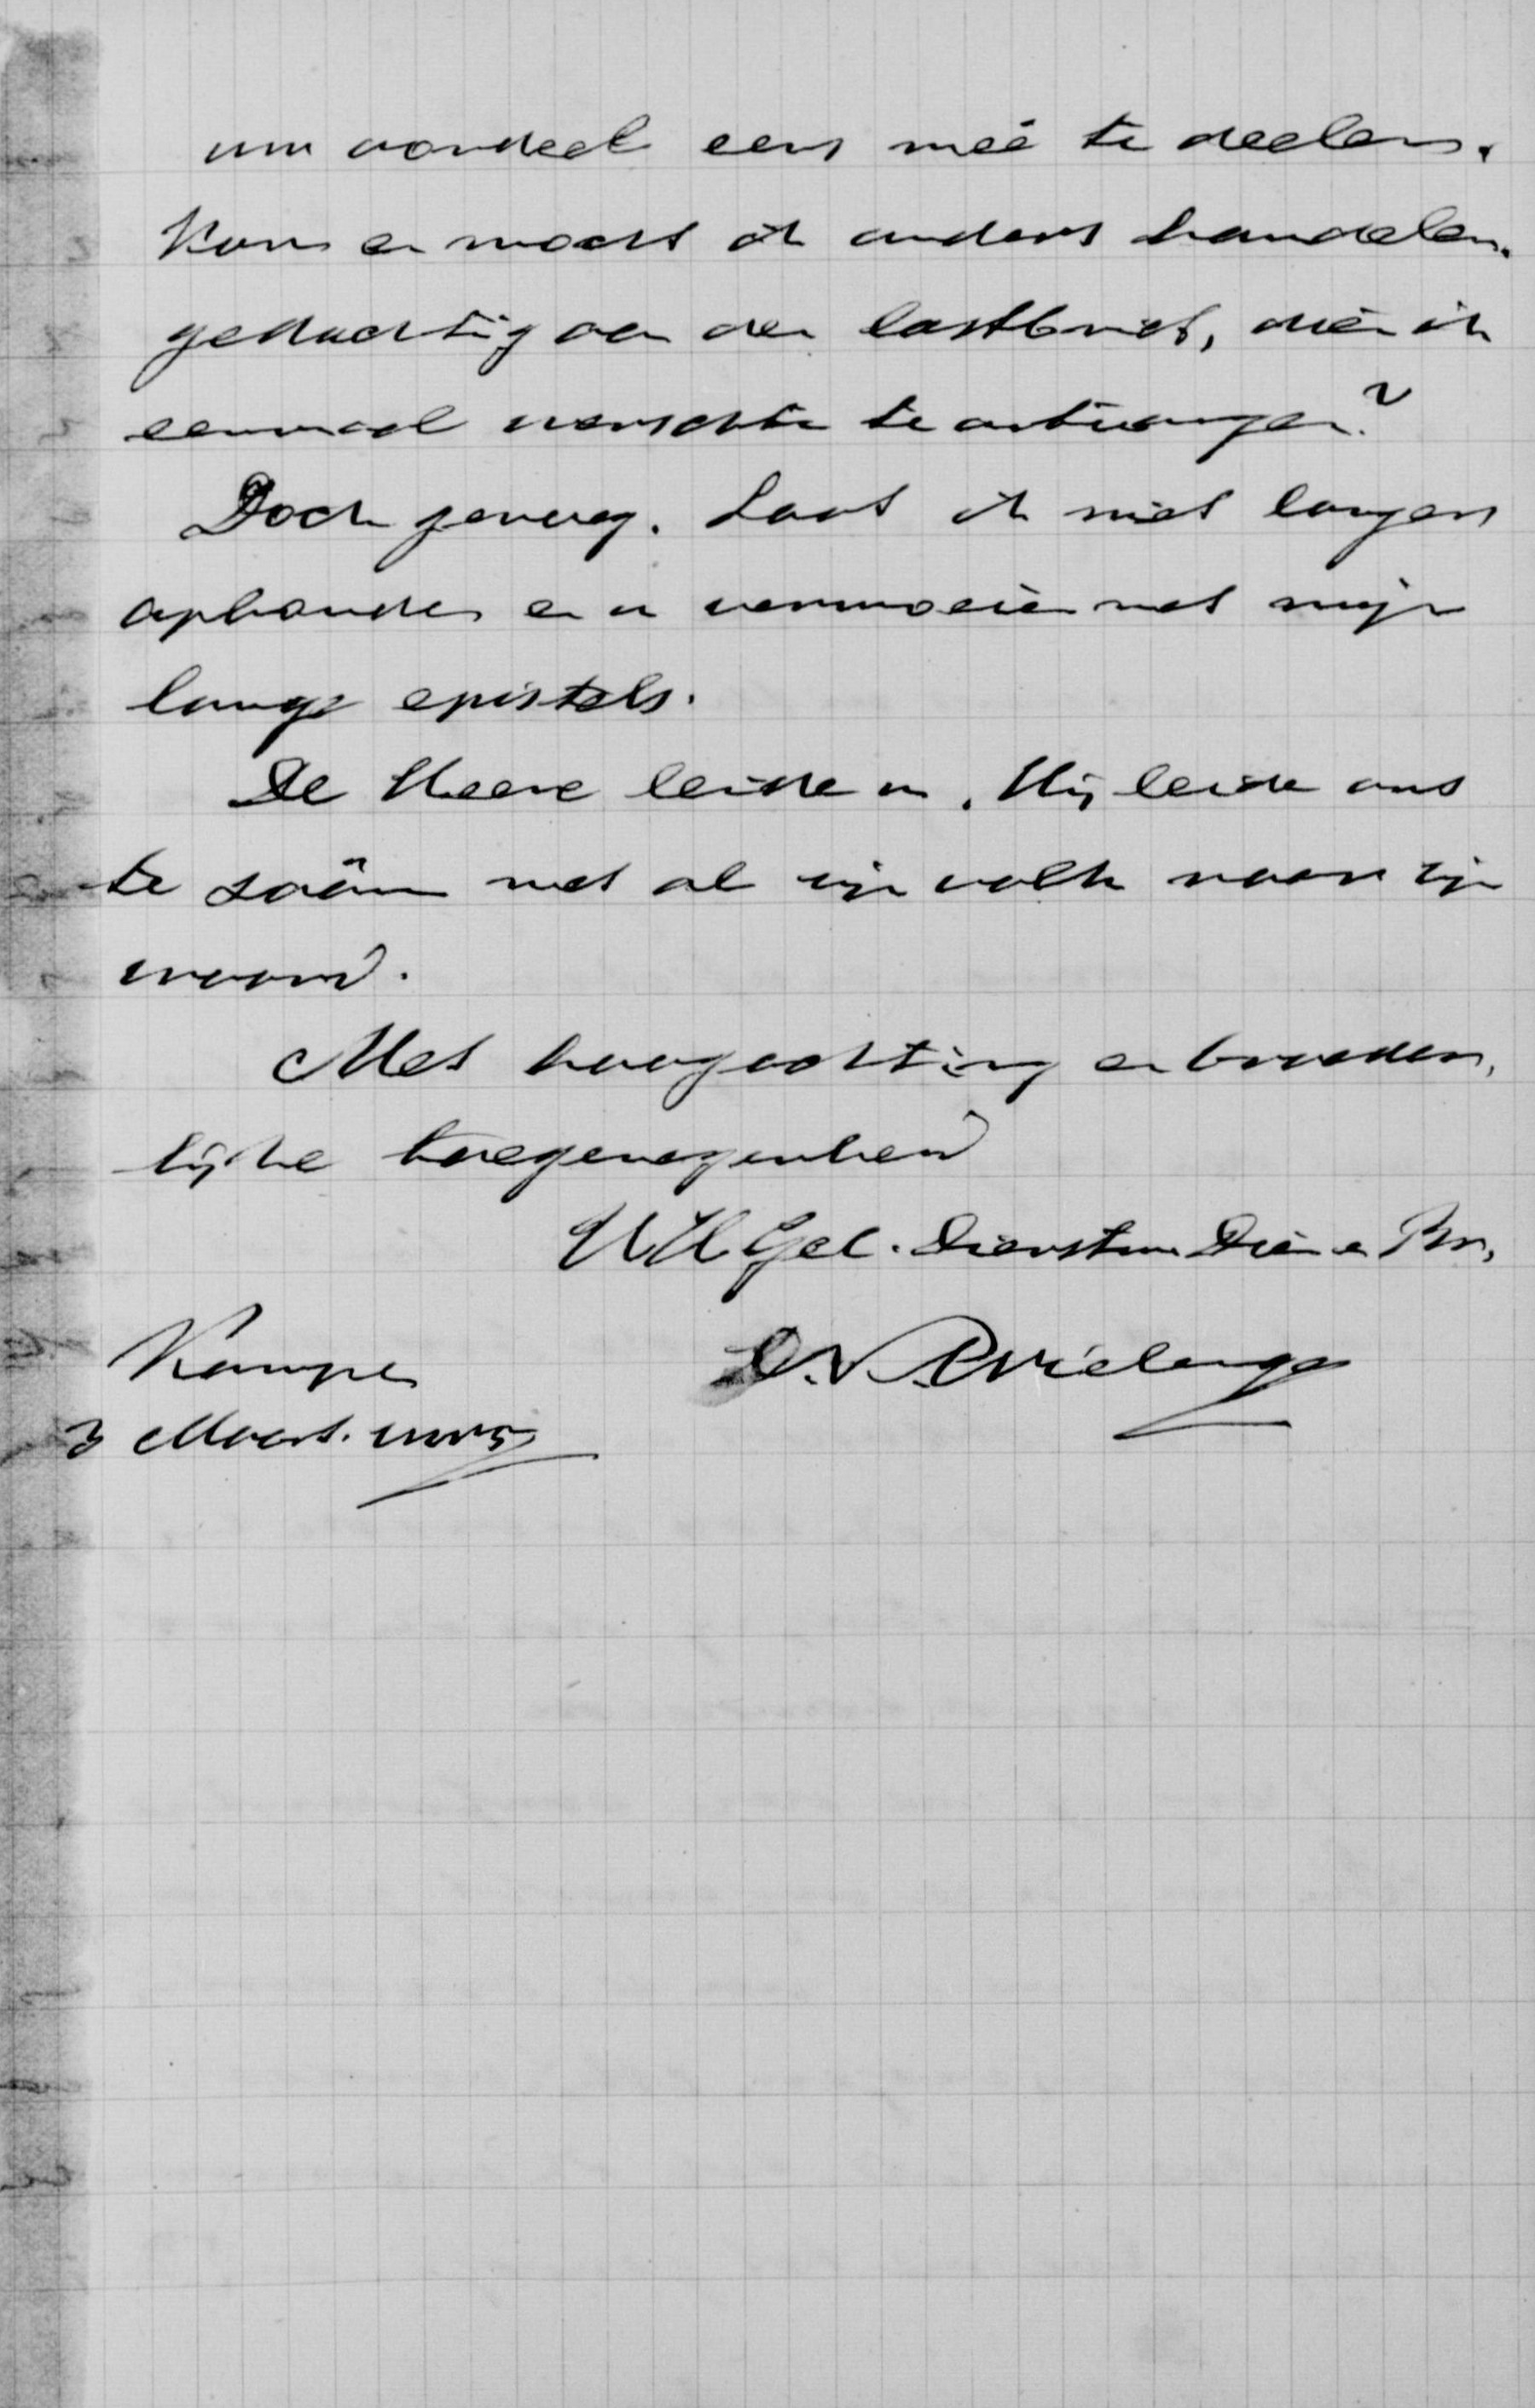 uw oordeel eens meê te deelen.
Kon en mocht ik anders handelen,
gedachtig aan den lastbrief, dien ik
eenmaal wenschte te ontvangen?
Doch genoeg. Laat ik niet langer
ophouden en u vermoeien met mijn
lange epistels.
De Heere leide u. Hij leide ons
te zaâm met al zijn volk naar zijn
woord.
Met hoogachting en broeder-
lijke toegenegenheid
UwHGel. Dienstw. Dien. en Br.,
D. K. Wielenga
Kampen
3 Maart